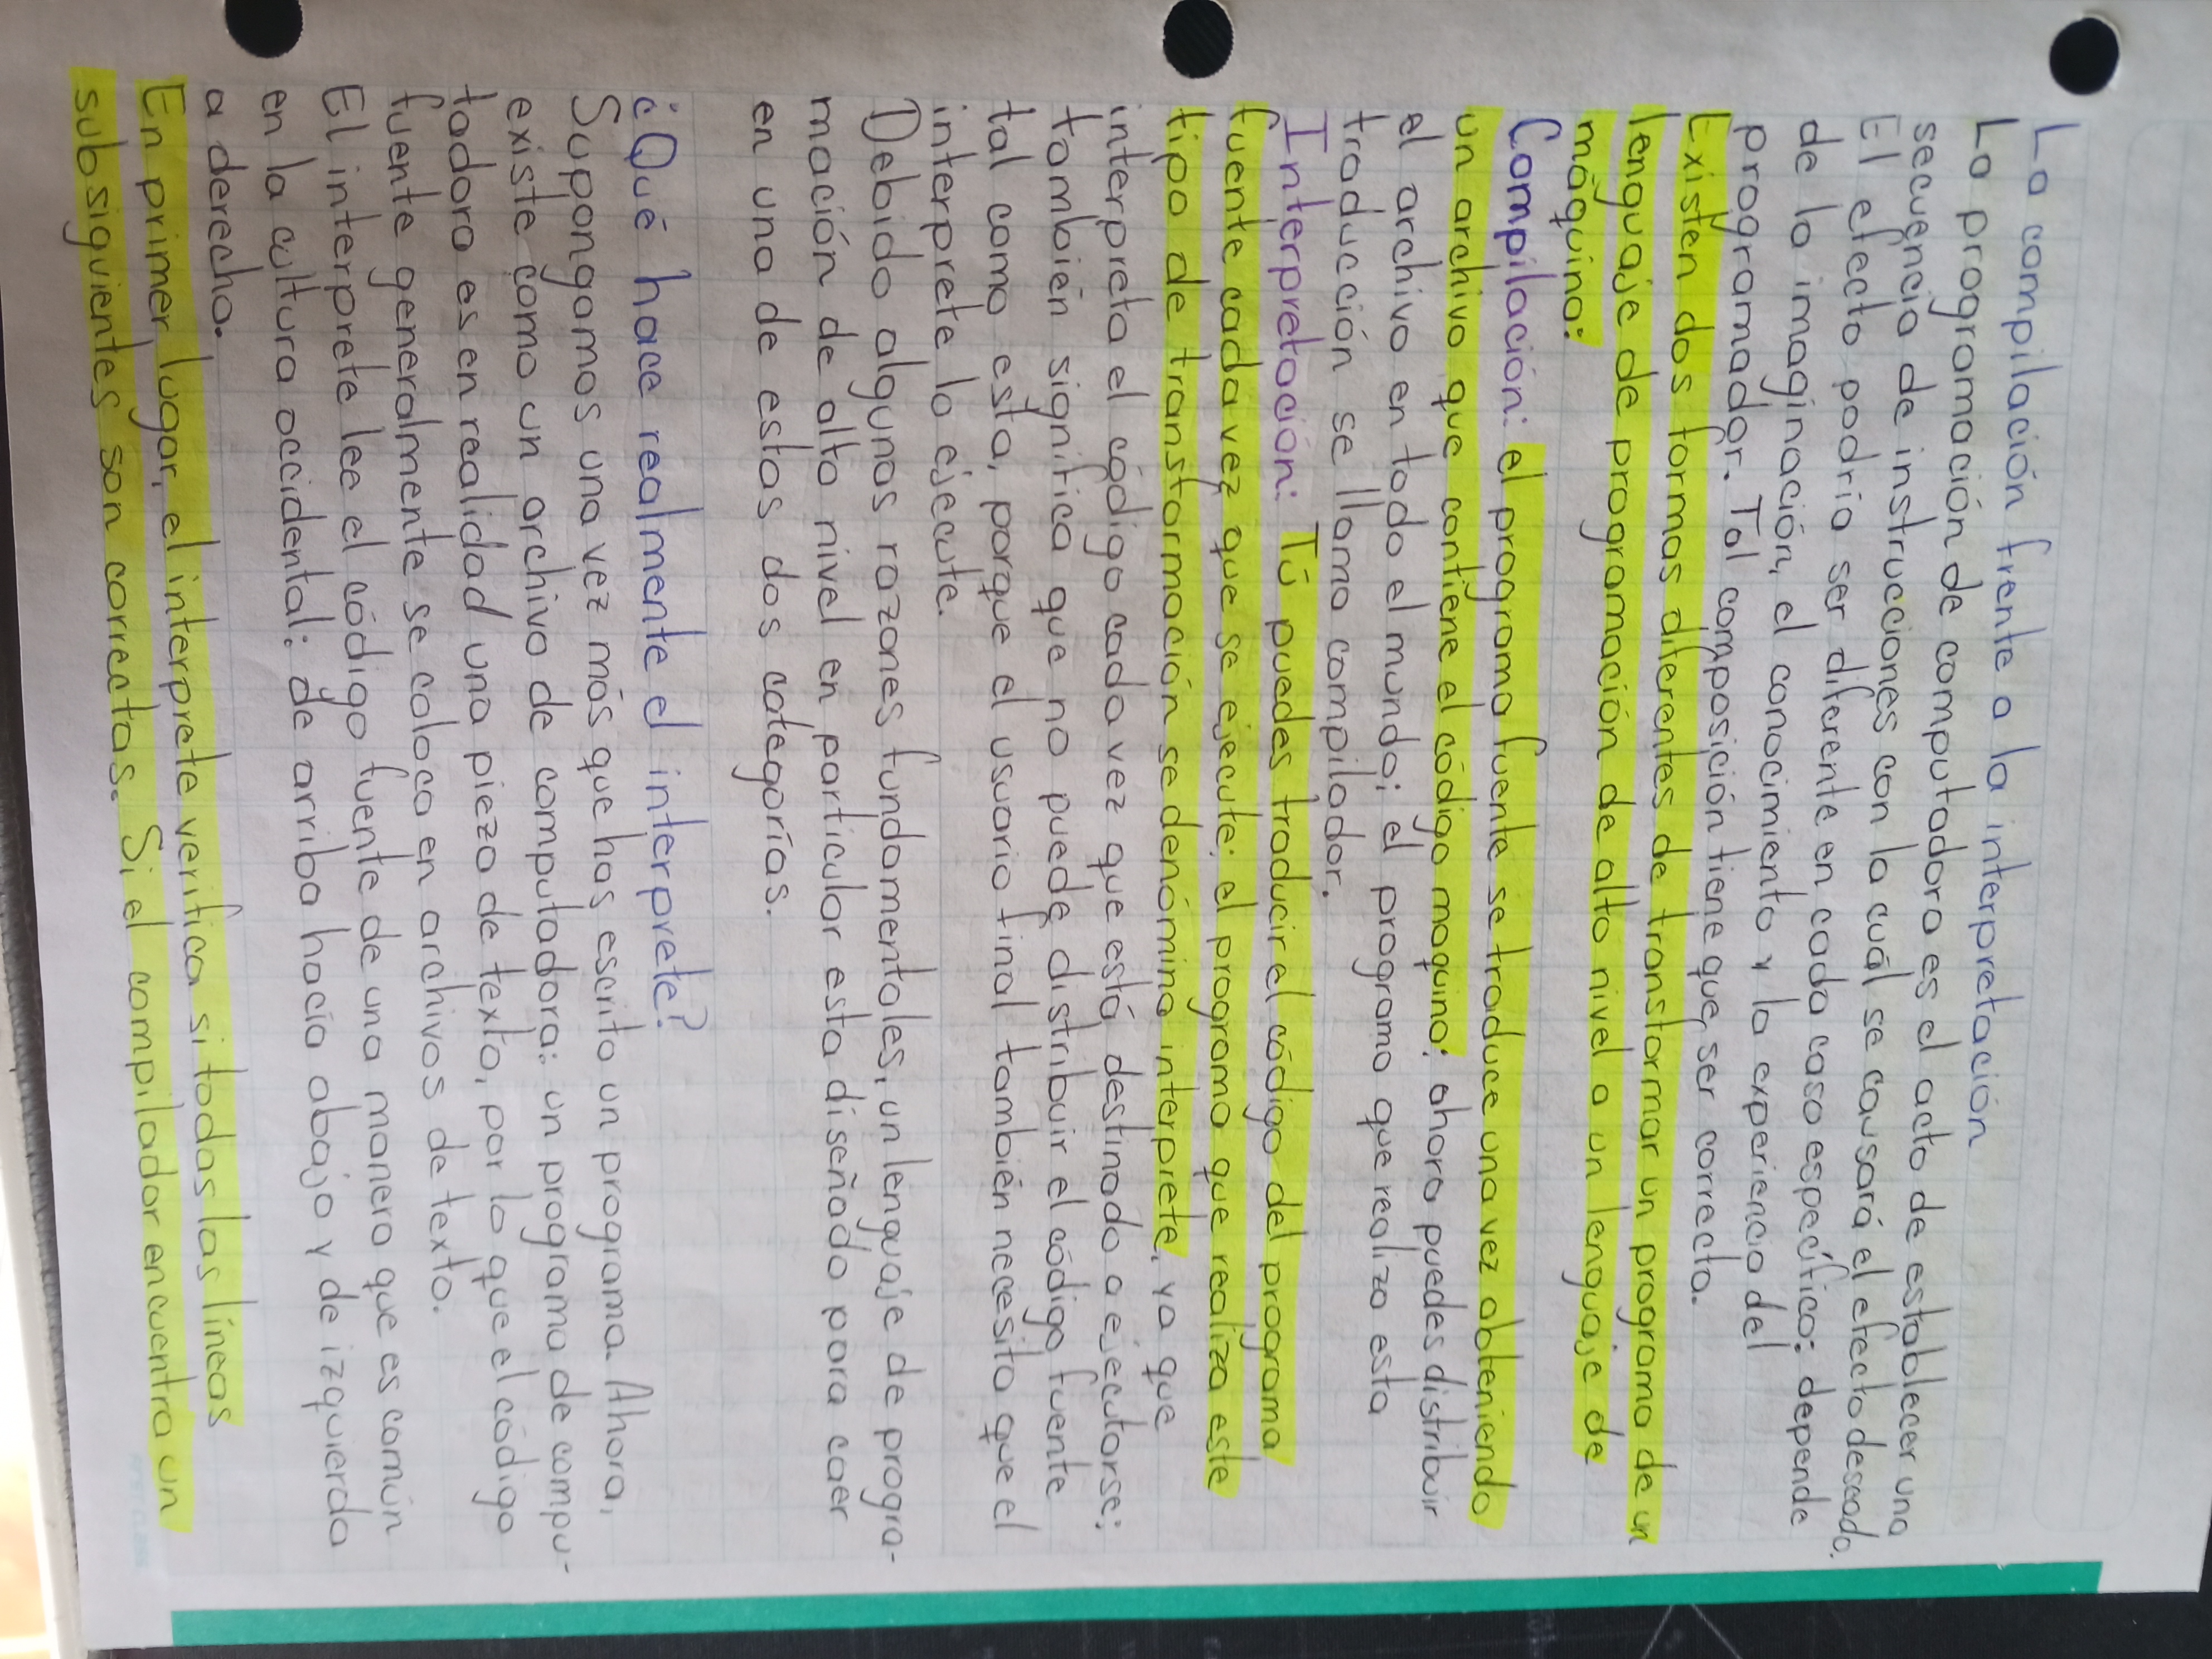 La compilación frente a la interpretación
La programación de computadora es el acto de establecer una
secuencia de instrucciones con la cuál se causará el efecto deseado.
El efecto podría ser diferente en cada caso específico: depende
de la imaginación, el conocimiento y la experiencia del
programador. Tal composición tiene que ser correcta.
Existen dos formas diferentes de transformar un programa de un
lenguaje de programación de alto nivel a un lenguaje de
máquina:
Compilación: el programa fuente se traduce una vez obteniendo
un archivo que contiene el código maquina; ahora puedes distribuir
el archivo en todo el mundo; el programa que realiza esta
traducción se llama compilador.
Interpretación: Tú puedes traducir el código del programa
fuente cada vez que se ejecute; el programa que realiza este
tipo de transformación se denómina interprete, ya que
interpreta el código cada vez que está destinado a ejecutarse;
también significa que no puede distribuir el código fuente
tal como esta, porque el usuario final también necesita que el
interprete lo ejecute.
Debido algunas razones fundamentales, un lenguaje de progra-
mación de alto nivel en particular esta diseñado para caer
en una de estas dos categorías.
¿Qué hace realmente el interprete?
Supongamos una vez más que has escrito un programa. Ahora,
existe como un archivo de computadora: un programa de compu-
tadora es en realidad una pieza de texto, por lo que el código
fuente generalmente se coloca en archivos de texto.
El interprete lee el código fuente de una manera que es común
en la cultura occidental: de arriba hacia abajo y de izquierda
a derecha.
En primer lugar, el interprete verifica si todas las líneas
subsiguientes son correctas. Si el compilador encuentra un